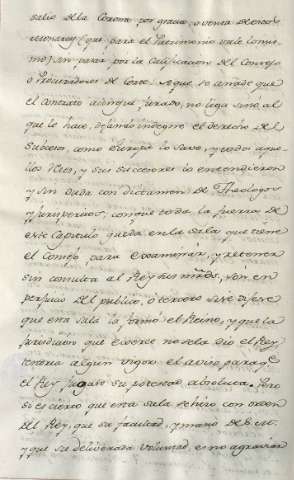 salio de la Corona por gracia, o venta de otros
Monarcas (que para el Patrimonio vale lo mis-
mo) sin pasar por la Calificacion del Consejo
o Procuradores de Corte. A que se añade que
el contrato aunque jurado, no liga sino al
que lo hace, dejando indegne el derecho del
subcesor, como siempre lo save, y todos aque-
llos Reos, y sus succesores lo entendieron
y sin duda con dictamen de Theologos
y jurisperitos, con que toda la fuerza de
este Capitulo queda en la sala que tiene
el Consejo para examinar, y retener
sin consulta al Rey sus , son en
perjuicio del publico, o tercero si se dijese
que esta sala la formó el Reino, y que la
jurisdicion que exerce no se la dio el Rey
tendria algun vigor el aviso para
el Rey su potestad absoluta. Pero
si es cierto que esta sala se hizo con orden
del Rey, que su facultad, y mano de
y que su deliberada voluntad, es no agraviar